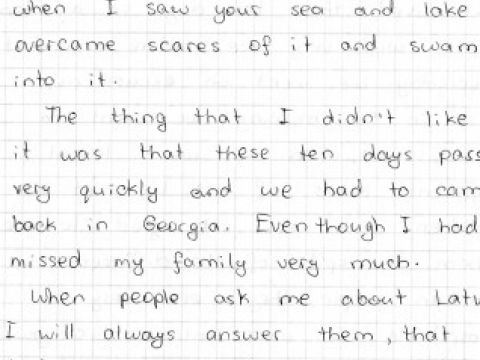 when I saw your sea and lake
overcame scares of it and swam
into it.
The thing that I didn't like
it was that these ten days pass
very quickly and we had to cam
back in Georgia. Even though I had
missed my family very much.
When people ask me about Latv
I will always answer them, that